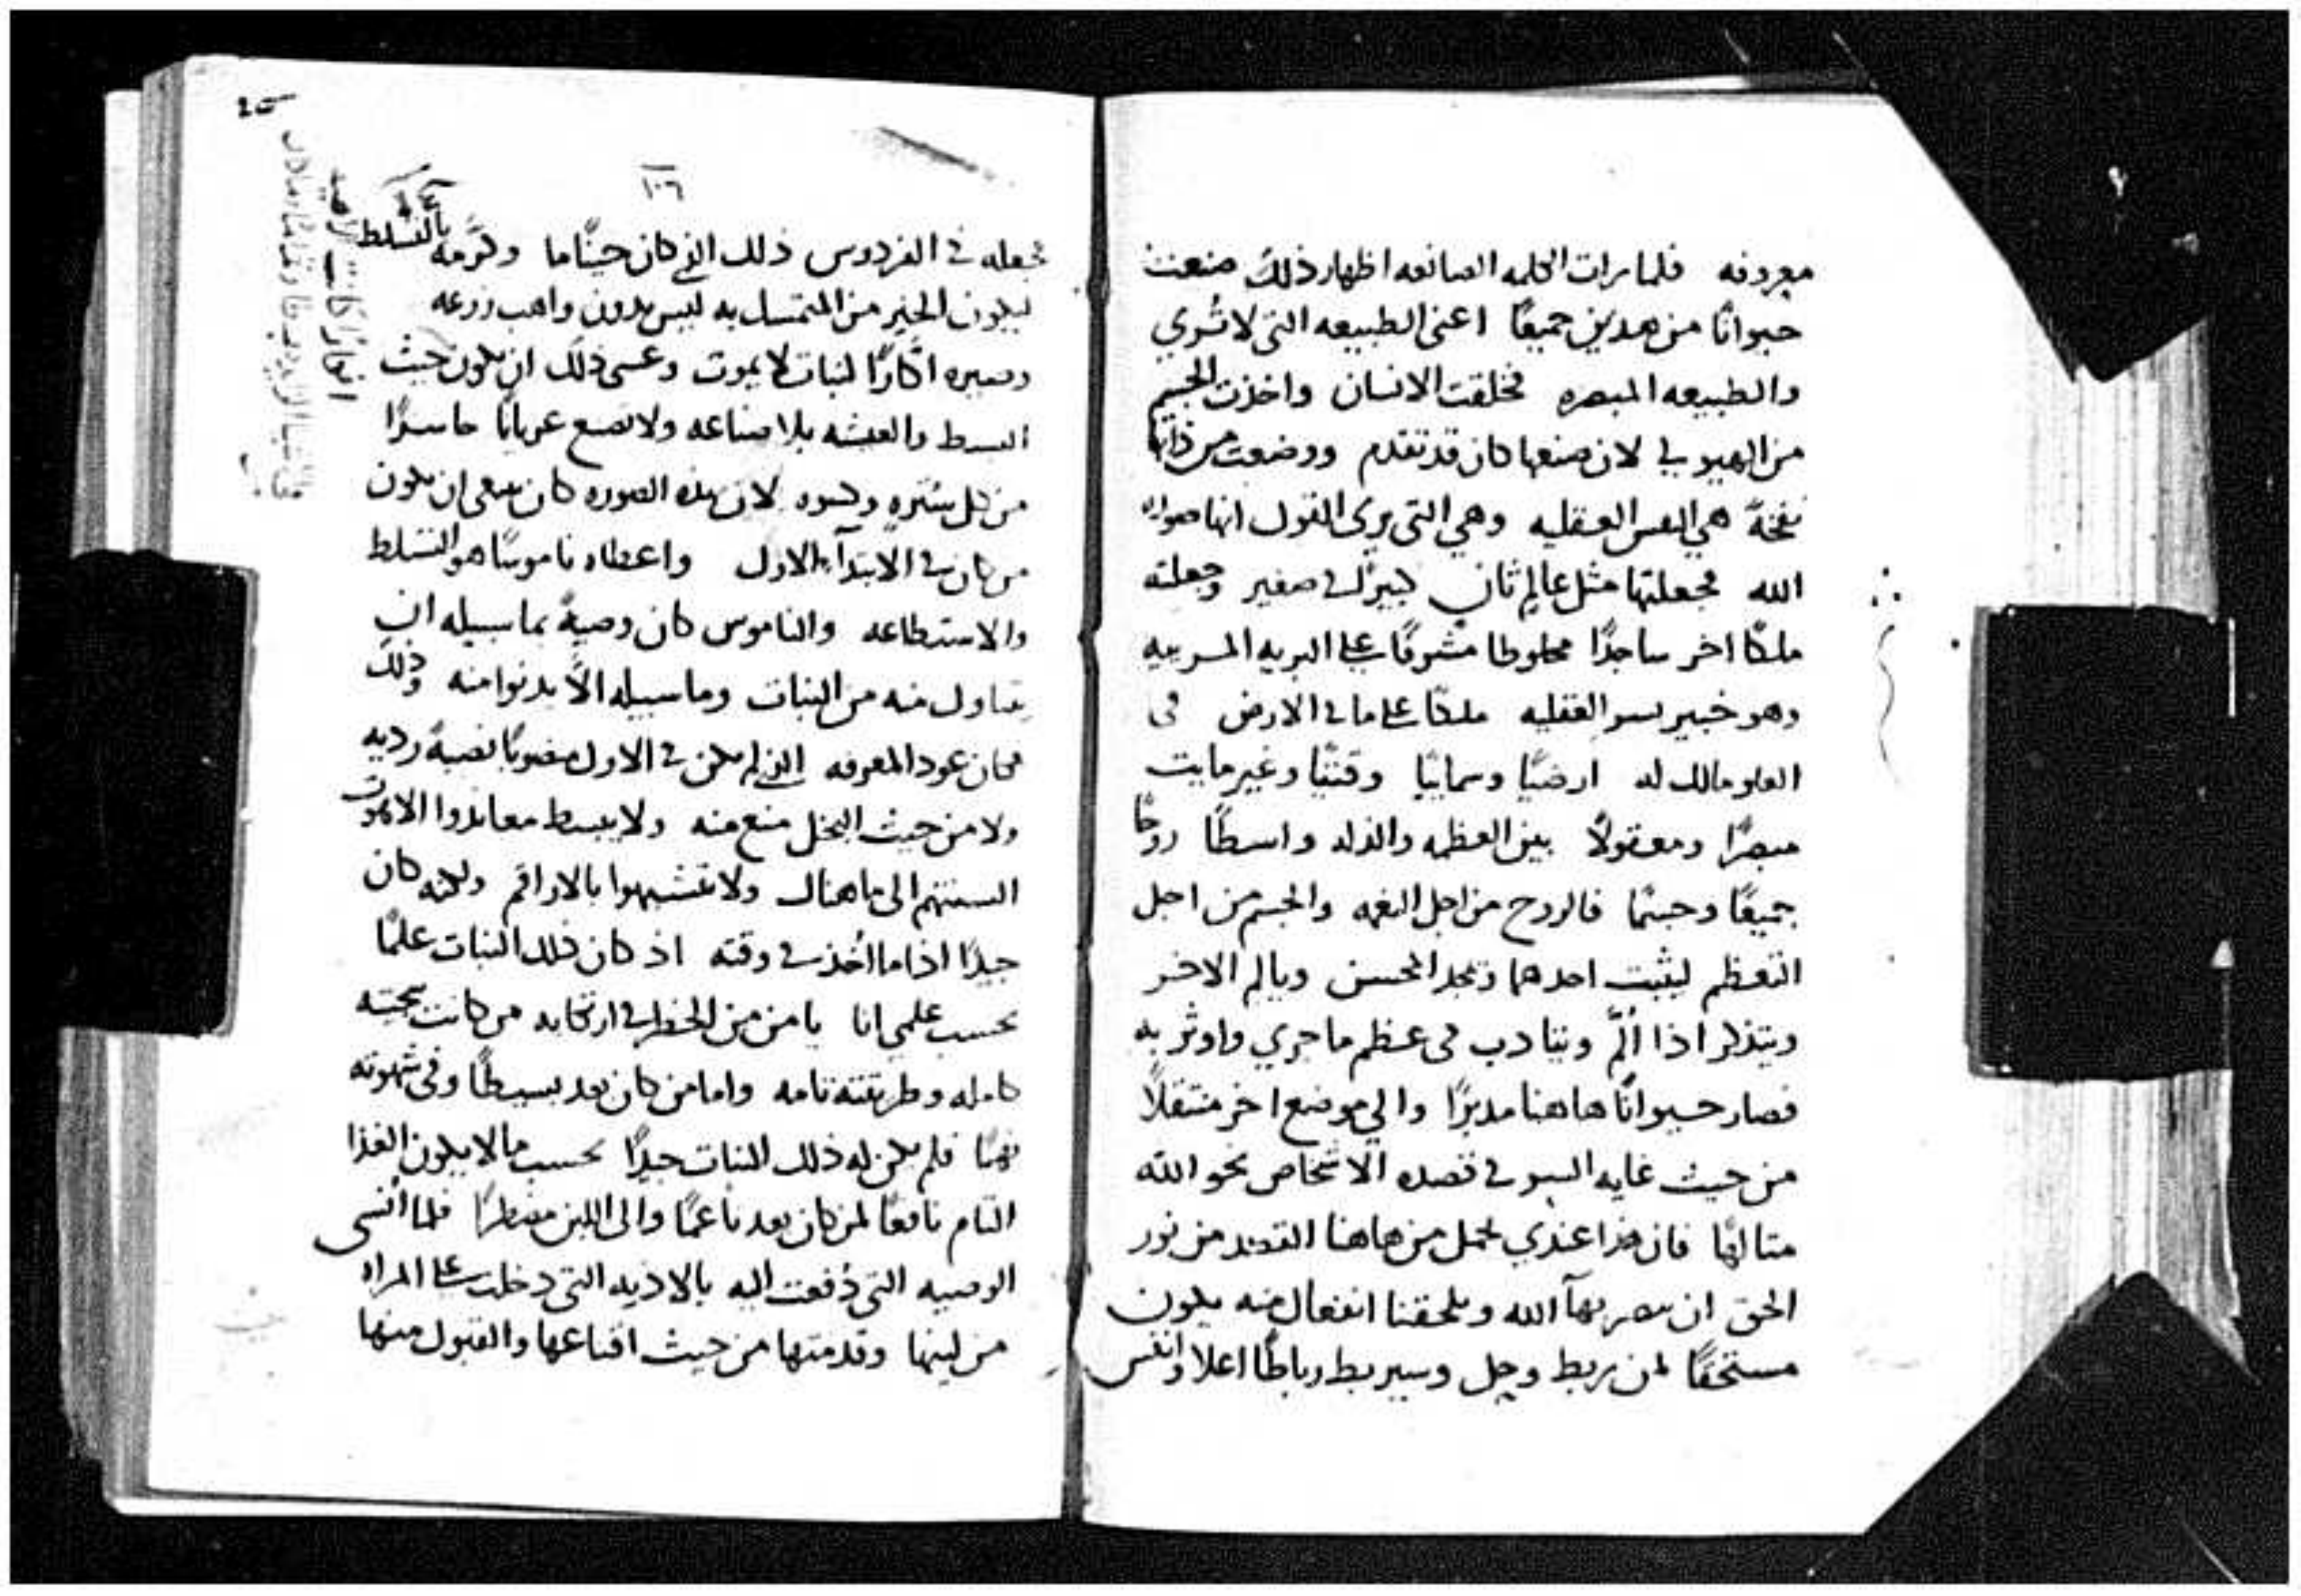 معروفه فلما رات الكلمه الصانعه اظهار ذلك صنعت
حيوانًا من هدين جميعًا اعنى الطبيعه التى لا تُري
والطبيعه المبصره فخلقت الانسان واخذت الجسم
من الهيولي لان صنعها كان قد تقدم ووضعت من ذاتها
نفخةً هي النفس العقليه وهي التى يرى القول انها صوره
الله فجعلتها مثل عالم ثانٍ كبيرًا في صغير وجعلته
ملكًا اخر ساجدًا مخلوطا مشرفًا على البريه المريه
وهو خبير بسر العقليه ملكًا على ما في الارض في
العلو مالك له ارضيًا وسماييًا وقتيًا وغير مايت
مبصرًا ومعقولًا بين العظمه والذله واسطًا روحًا
جميعًا وجسمًا فالروح من اجل النعمه والجسم من اجل
التعظم ليثبت احدهما ويمجد المحسن ويالم الاخر
ويتذكر اذا أَلَم ويتادب في عظم ما جري واوثر به
فصار حيوانًا هاهنا مدبرًا والي موضع اخر منتقلًا
من حيث غايه السر في قصده الاشخاص نحو الله
متالهًا فان هذا عندي يحمل من هاهنا القصد من نور
الحق ان بهآ الله ويلحقنا انفعال منه يكون
مستحقًا لمن يربط وحل وسيربط رباطًا اعلا وانفس
١٠٦
فجعله في الفردوس ذلك الذي كان حينًا ما وكرّمه بالتسلط
ليكون الخير من المتمسك به ليس بدون واهب زرعه
وصيره اكّارًا لنبات لا يموت وعسى ذلك ان يكون حيث
البسط والعيشه بلا صناعه ولا تصنع عريانًا حاسرًا
من كل سُترهٍ وكسوه لان هذه الصوره كان ينبغى ان يكون
من كان في الابتدآء الاول واعطاه ناموسًا هو التسلط
والاستطاعه والناموس كان وصيةً بما سبيله ان
يتناول منه من النبات وما سبيله الّا يدنوا منه وذلك
فكان عود المعرفه الذي لم يكن في الاول منصوبًا نصبةً رديه
ولا من حيث البخل منع منه ولا يبسط معاندوا اللاهوت
السنتهم الى ما هناك ولا تتشبهوا بالاراقم ولكنه كان
جيدًا اذا ما اُخذ في وقته اذ كان ذلك النبات علمًا
بحسب علمي انا يامن من الخطر في ارتكابه من كانت سجيته
كامله وطريقته تامه واما من كان بعد بسيطًا وفي شهوته
نهمًا فلم يكن له ذلك النبات جيدًا بحسب ما لا يكون الغذا
التام نافعًا لمن كان بعد ناعمًا والى اللبن مضطرًا فلما اُنسى
الوصيه التى دُفعت اليه بالاذيه التى دخلت على المراه
من لينها وقدمتها من حيث اقناعها والقبول منها